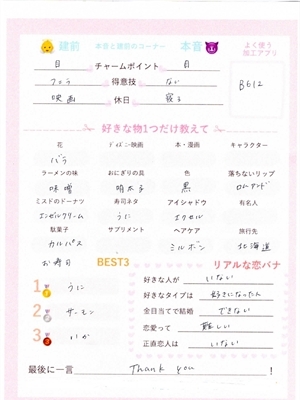 建前 本音と建前のコーナー 本音 よく使う加工アプリ
目 チャームポイント 目
得意技 ない
映画 休日 寝る
B612
好きな物1つだけ教えて
花 ディズニー映画 本・漫画 キャラクター
バラ
ラーメンの味 おにぎりの具 色 落ちないリップ
味噌 明太子 黒 ロムアンド
ミスドのドーナツ 寿司ネタ アイシャドウ 有名人
エンゼルクリーム うに エクセル
駄菓子 サプリメント ヘアケア 旅行先
カルパス ミルボン 北海道
お寿司 BEST3 リアルな恋バナ
1 うに
2 サーモン
3 いか
好きな人が いない
好きなタイプは 好きになった人
金目当てで結婚 できない
恋愛って 難しい
正直恋人は いない
最後に一言 Thank you !